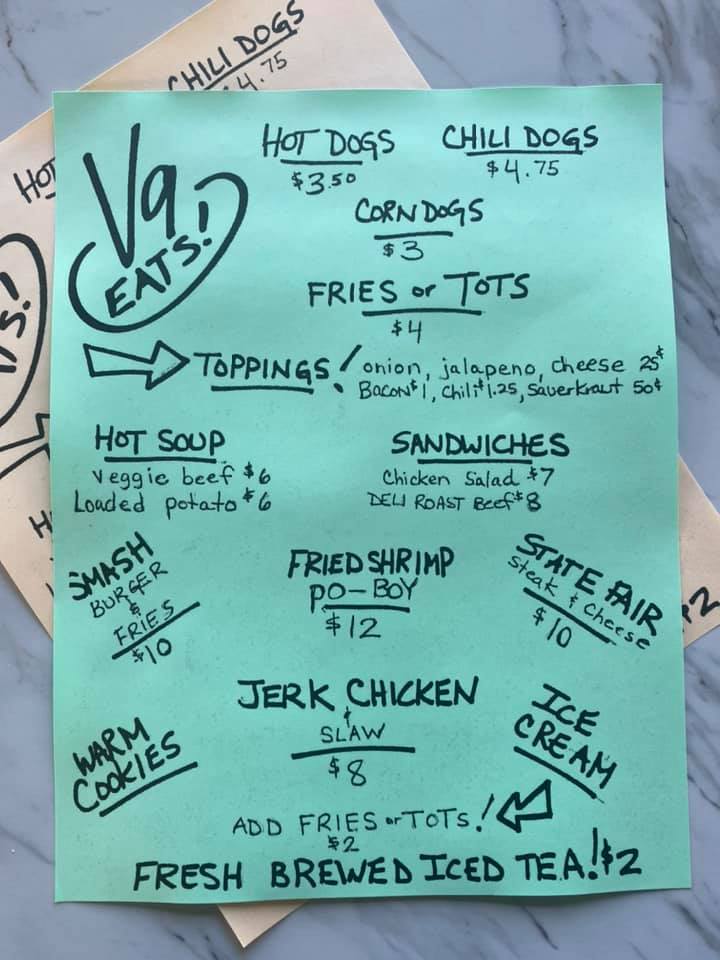 CHILI DOGS
4.75
HOT
S!
H
$2
V9
EATS!
HOT DOGS
$3.50
CHILI DOGS
$4.75
CORN DOGS
$3
FRIES or TOTS
$4
TOPPINGS! onion, jalapeno, cheese 25¢
BACON $1, Chili $1.25, Sauerkraut 50¢
HOT SOUP
Veggie beef $6
Loaded potato $6
SANDWICHES
Chicken Salad $7
DELI ROAST BeeF $8
SMASH
BURGER
&
FRIES
$10
FRIED SHRIMP
PO-BOY
$12
STATE FAIR
Steak & Cheese
$10
JERK CHICKEN
&
SLAW
$8
WARM
COOKIES
ICE
CREAM
ADD FRIES or TOTS!
$2
FRESH BREWED ICED TEA! $2